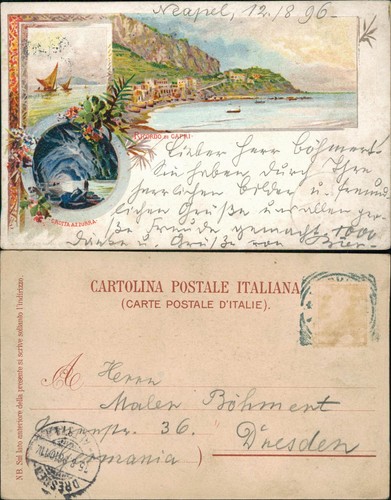 Neapel, 12./8 96.
RICORDO DI CAPRI
GROTTA AZZURRA
Lieber Herr Böhmert
Sie haben durch Ihre
herrlichen Bilder u. freund-
lichen Grüße uns allen gro-
ße Freude gemacht. 1000
Danke u. Grüße von
CARTOLINA POSTALE ITALIANA
(CARTE POSTALE D'ITALIE).
NB. Sul lato anteriore della presente si scrive soltanto l'indirizzo.
A Herrn
Maler Böhment
36. Dresden
(Germania)
DRESDEN